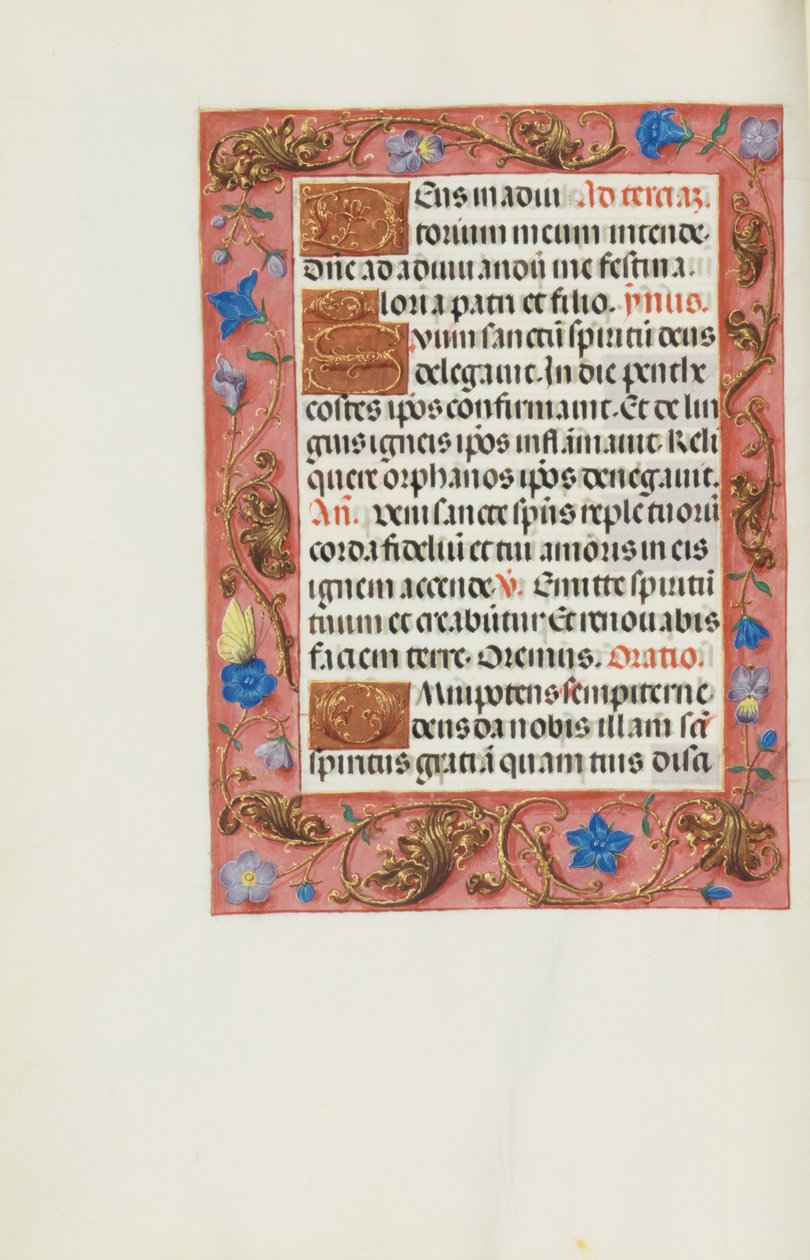 Deus in adiu Ad terciaz.
torium meum intende.
Dn̄e ad adiuuandū me festina.
Gloria patri et filio. ẏnus.
Suum sanctū spiritū deus
delegauit. In die penthe
costes ip̄os confirmauit. Et de lin
guis igneis ip̄os inflāmauit. Reli
quere orphanos ip̄os denegauit.
An̄. Veni sancte sp̄us reple tuorū
corda fideliū et tui amoris in eis
ignem accende. V̄. Emitte spiritū
tuum et creabūtur Et renouabis
faciem terre. Oremus. Oratio.
Omnipotens sempiterne
deus da nobis illam sc̄i
spiritus gratiā quam tuis disci